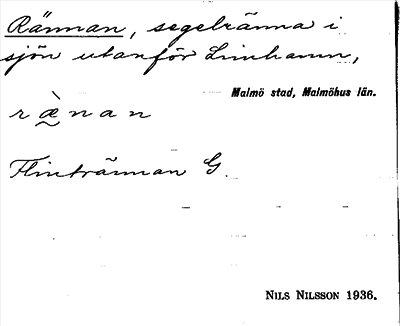 Rännan, segelränna i
sjön utanför Limhamn,
Malmö stad, Malmöhus län.
ræ̀nan
Flintrännan G.
NILS NILSSON 1936.